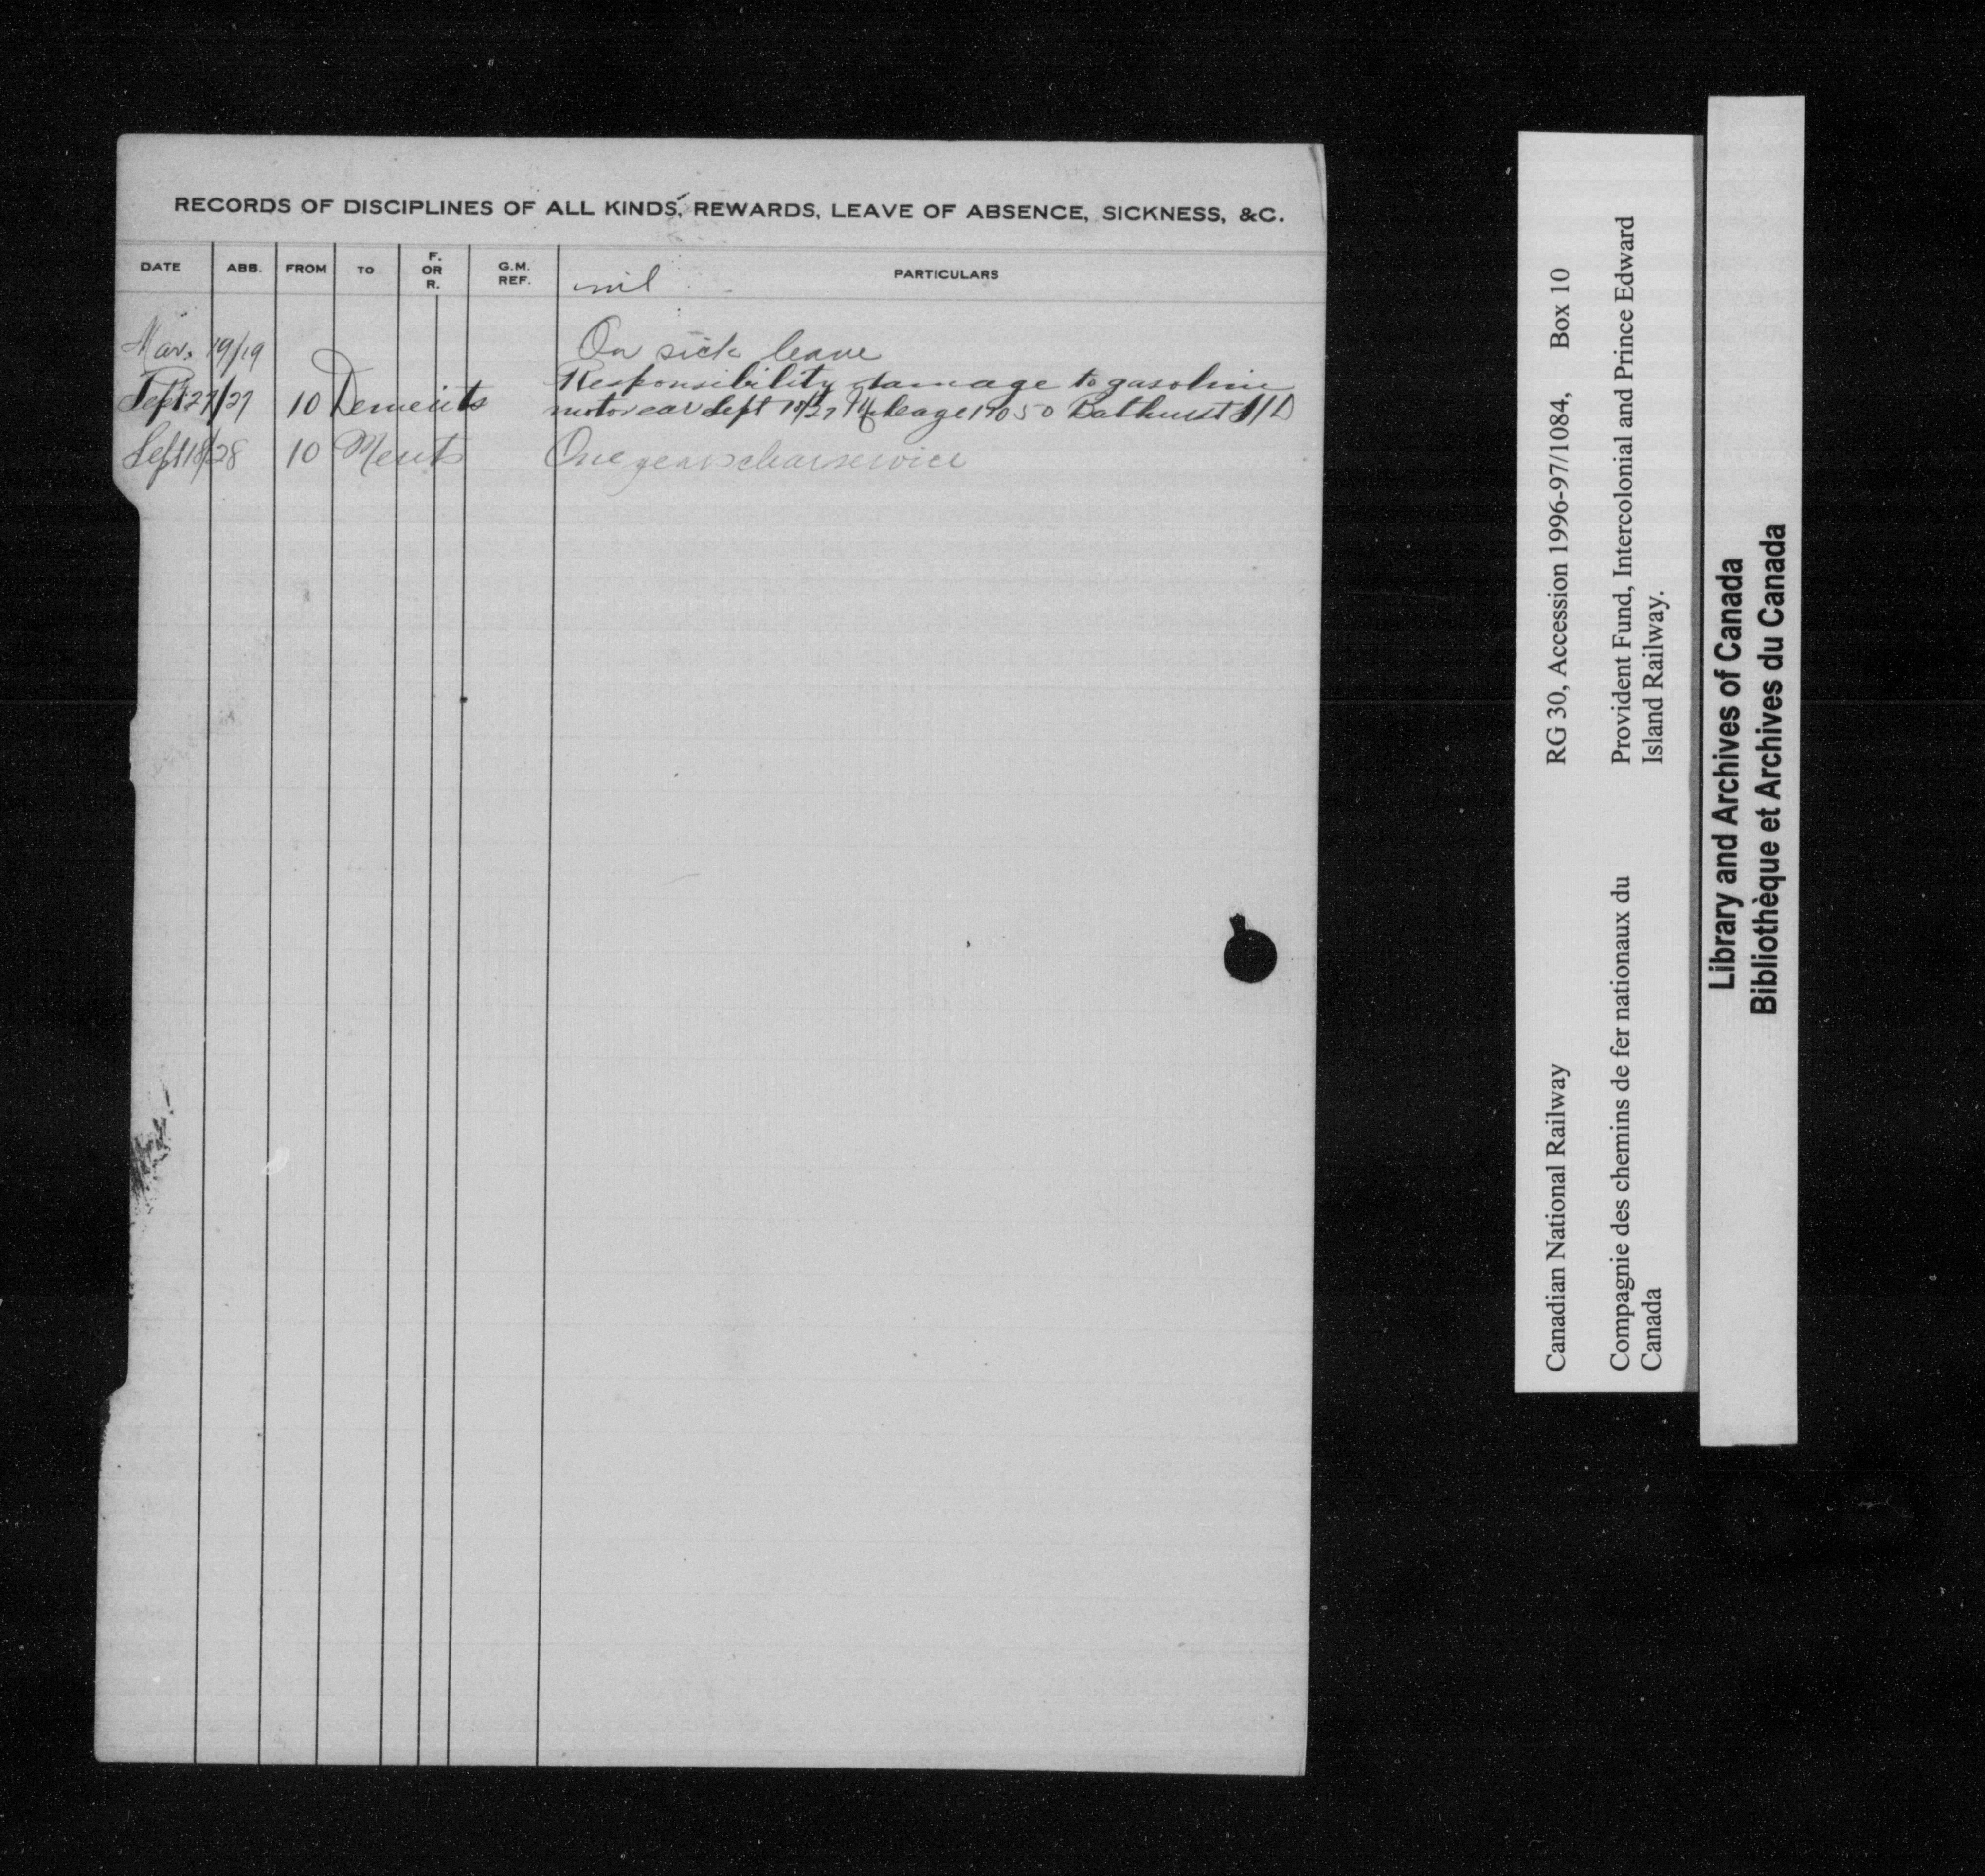 RECORDS OF DISCIPLINES OF ALL KINDS, REWARDS, LEAVE OF ABSENCE, SICKNESS, &C.
DATE ABB. FROM TO F. OR R. G.M. REF. PARTICULARS
nil
Mar. 19/19 On sick leave
Sept 27/27 10 Demerits Responsibility damage to gasoline
motor car Sept 10/27 Mileage Bathurst S/D
Sept 18/28 10 Merits One year clear service
Canadian National Railway RG 30, Accession 1996-97/1084, Box 10
Compagnie des chemins de fer nationaux du
Canada
Provident Fund, Intercolonial and Prince Edward
Island Railway.
Library and Archives of Canada
Bibliothèque et Archives du Canada